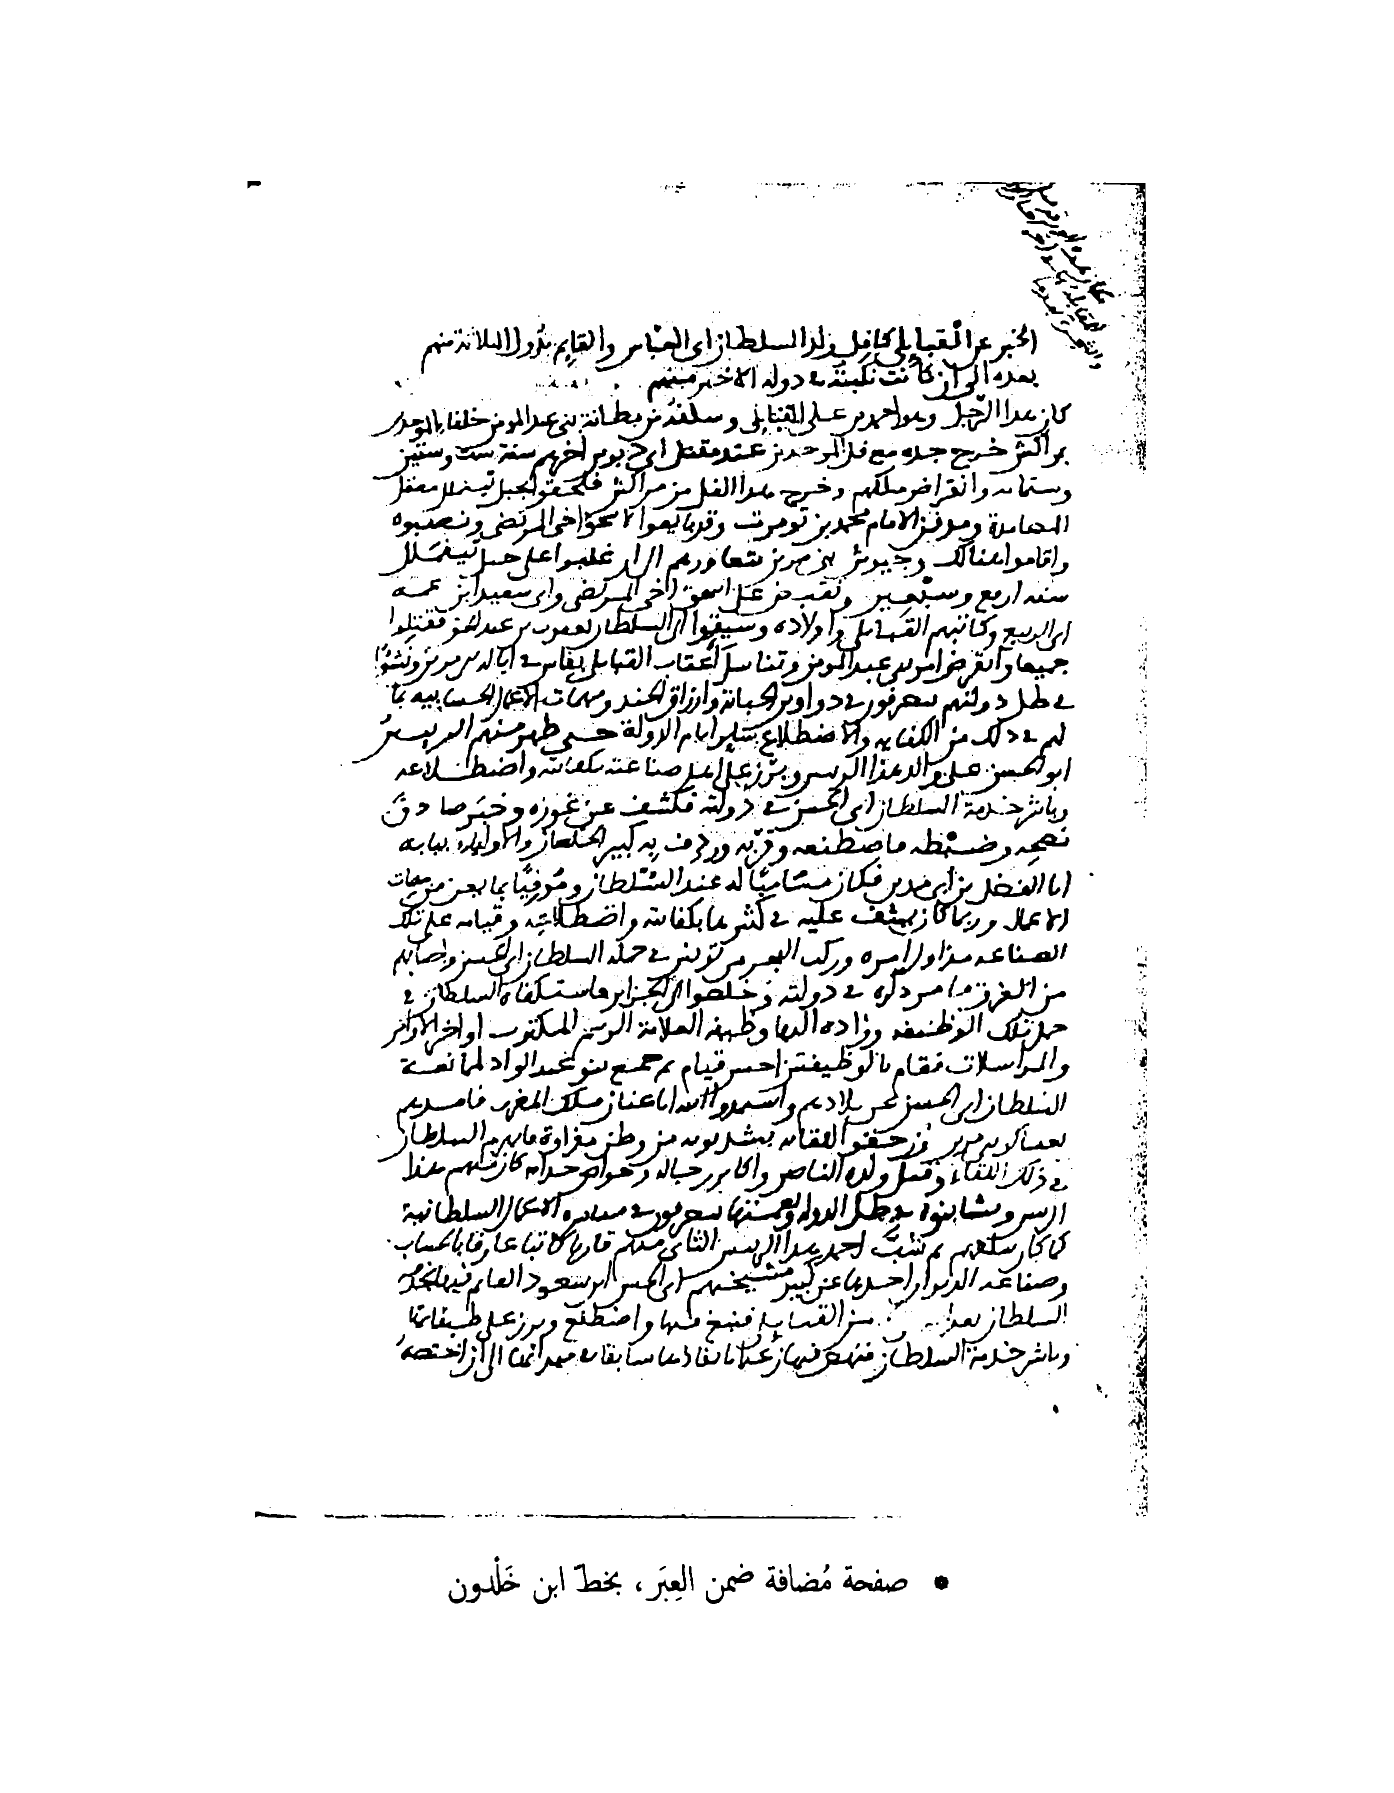 الخبر عن القبايلي كافل ولد السلطان ابى العباس والقايم بدول الثلاثة منهم
بعده الى ان كانت نكبته فى دولة الاخير منهم
كان هذا الرجل وهو احمد بن على القبايلى وسلفه من بطانة بنى عبد المومن خلفاء الموحدين
بمراكش خرج جده مع فل الموحدين عند مقتل ابى دبوس اخرهم سنة ست وستين
وستمائة وانقراض ملكهم وخرج هذا الفل من مراكش فلحقوا بجبل تينملل معقل
المصامدة ومدفن الامام محمد بن تومرت وقد بايعوا لاسحق اخى المرتضى ونصبوه
واقاموا هنالك وجيوش بنى مرين تتعاورهم الى ان غلبوا على جبل تينملل
سنة اربع وسبعين وتقبض على اسحق اخى المرتضى وابى سعيد ابن عمه
ابى الربيع وكاتبهم القبايلى واولاده وسيقوا الى السلطان يعقوب بن عبد الحق فقتلوا
جميعا وانقرض امر بنى عبد المومن وتناسل أعقاب القبايلى بفاس فى ايالة بنى مرين ونشئوا
فى ظل دولتهم يتصرفون فى دواوين الجباية وارزاق الجند ومهمات الاعمال الحسابيه بما
لهم فى ذلك من الكفايه والاضطلاع ساير ايام الدولة حتى ظهر منهم الرييس
ابو الحسن على والد هذا الرييس وبرز على اهل صناعته بكفايته واضطلاعه
وباشر خدمة السلطان ابى الحسن فى دولته فكشف عن غوره وخبر صادق
نصحه وضبطه فاصطنعه وقربه وردف به كبير الخلصان والاولياء ببابه
ابا الفضل بن ابى مدين فكان مساميًا له عند السلطان وموفيًا بما يعن من مهمات
الاعمال وربما كان يشف عليه فى كثير منها بكفايته واضطلاعه وقيامه على تلك
الصناعه مذ اول امره وركب البحر من تونس فى جملة السلطان ابى الحسن واصابهم
من الغرق ما مر ذكره فى دولته وخلصوا الى الجزاير فاستكفاه السلطان فى
حمل تلك الوظيفه وزاده اليها وظيفه العلامة الرسم المكتوب اواخر الاوامر
والمراسلات فقام بالوظيفتين احسن قيام ثم جمع بنو عبد الواد لممانعة
السلطان ابى الحسن عن بلادهم واستمدوا ابا عنان ملك المغرب فامدهم
بعساكر بنى مرين وزحفوا للقائه بشدبونه من وطن مغراوة فانهزم السلطان
فى ذلك اللقاء وقتل ولده الناصر واكابر رجاله وخواص خدامه كان منهم هذا
الرييس ونشا بنوه فى ظل الدولة ونعمتها يتصرفون فى مباشرة الاعمال السلطانية
كما كان سلفهم ثم شبّ احمد هذا الرييس الثانى منهم قارئا كاتبا عارفا بالحساب
وصناعة الديوان اخذها عن كبير مشيختهم ابى الحسن ابن سعود القايم فيها بخدمة
السلطان بعد من القبايل فنبغ فيها واضطلع وبرز على طبقاتها
وباشر خدمة السلطان فنهض فيها الى ان اختصه
• صفحة مُضافة ضمن العِبَر ، بخطّ ابن خَلْدون